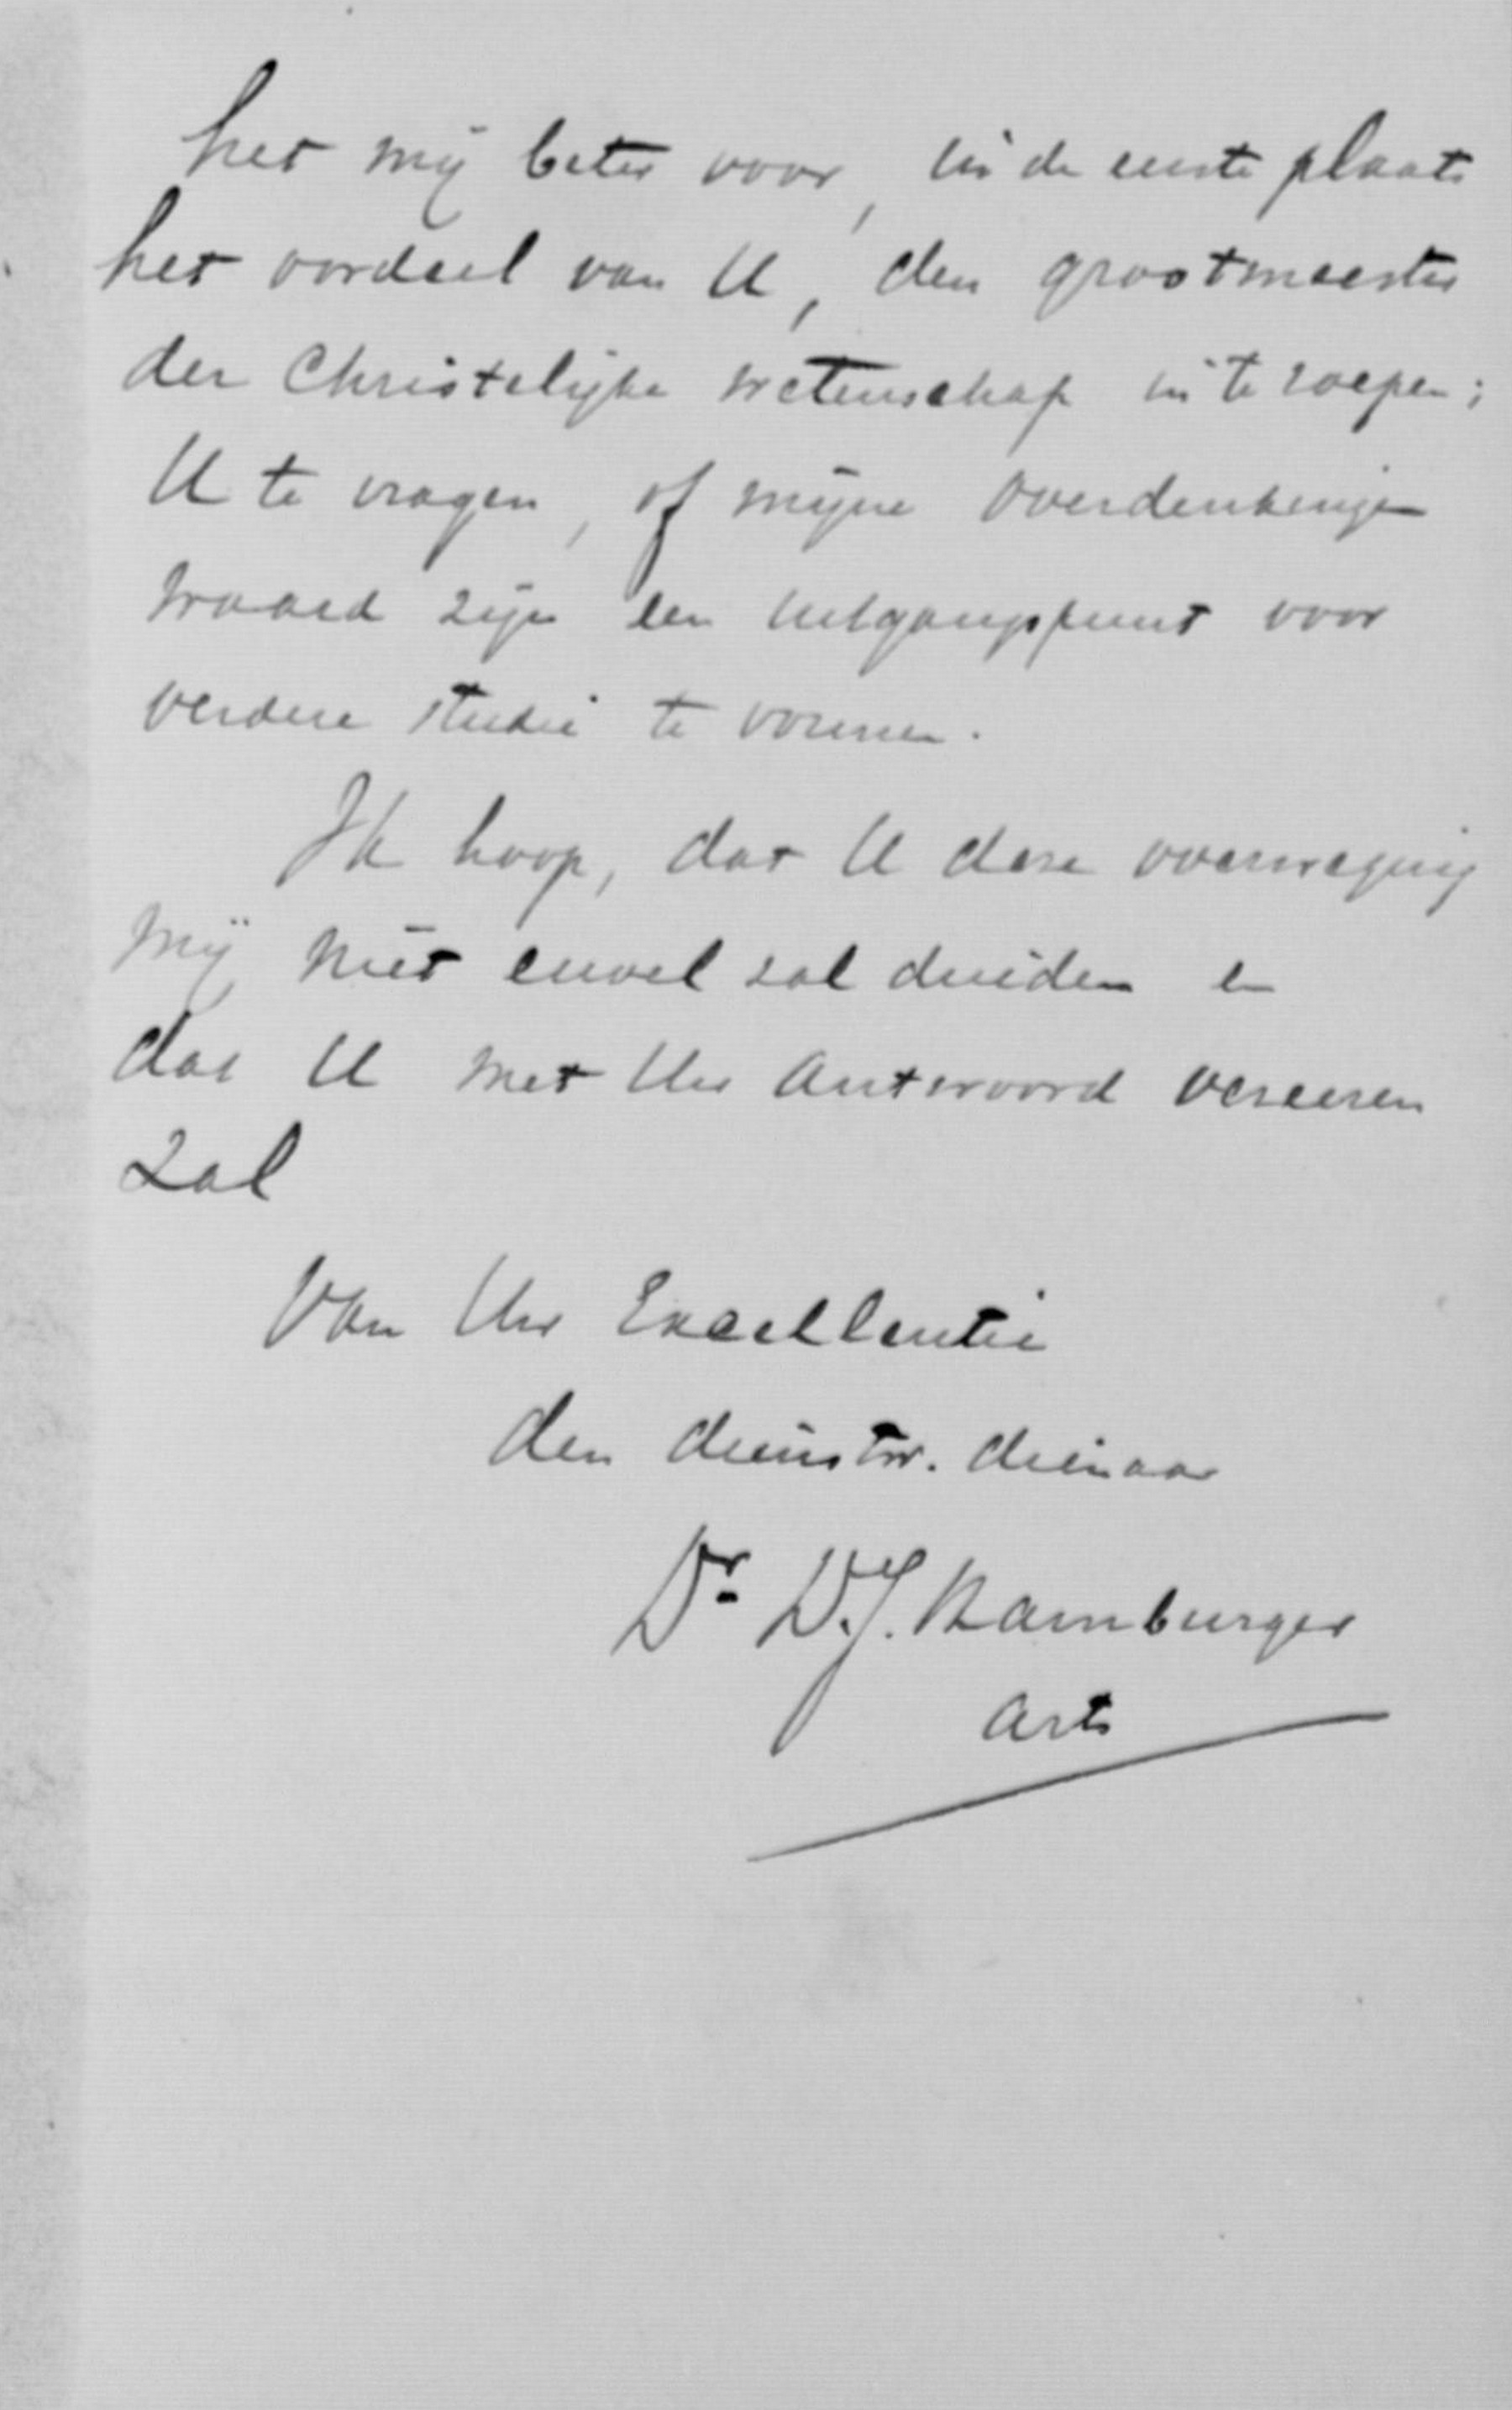 het mij beter voor, in de eerste plaats
het oordeel van U, den grootmeester
der Christelijke wetenschap in te roepen;
U te vragen, of mijne overdenkingen
waard zijn een uitgangspunt voor
verdere studie te vormen.
Ik hoop, dat U deze overweging
mij niet euvel zal duiden en
dat U met Uw antwoord vereeren
zal
Van Uw Excellentie
den dienstw. dienaar
Dr. D.J. Hamburger
arts